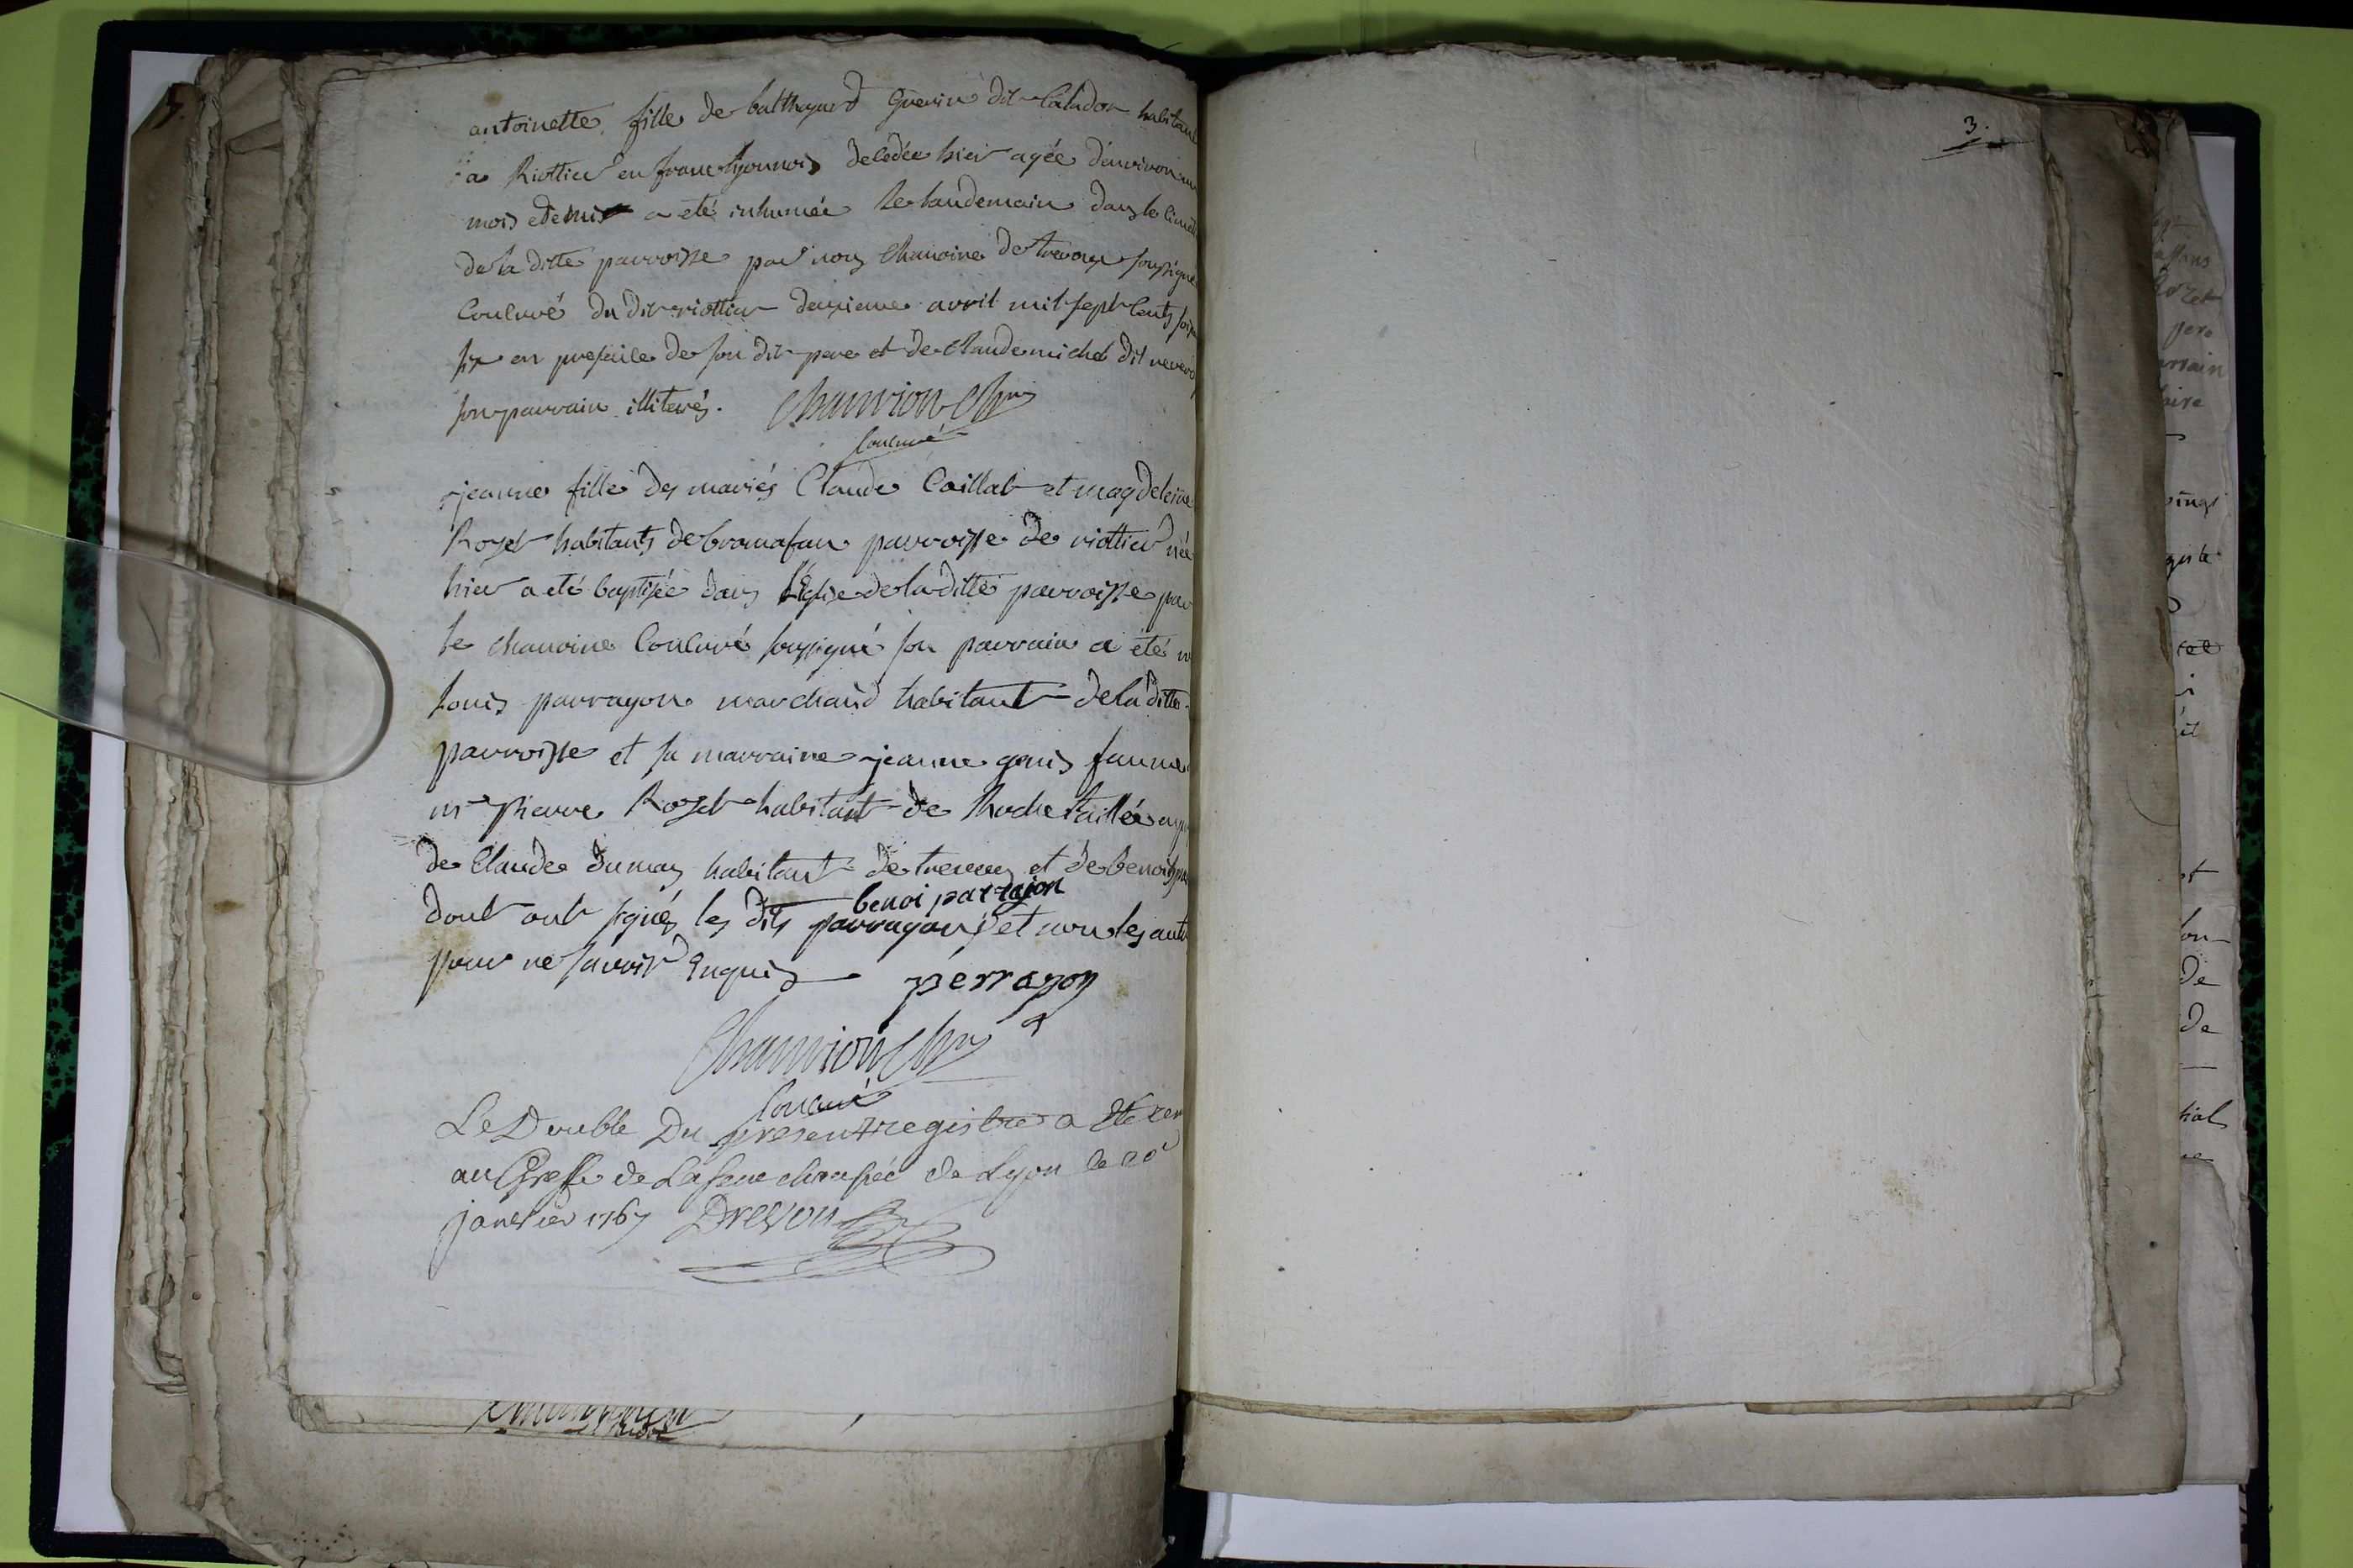 antoinette fille de balthazard Guerin dit Caladon habitant
a Riottier en franc lyonnois decedée hier agée d'environ un
mois et demis a eté inhumée le landemain dans le cimet
de la ditte parroisse par nous chanoine de trevoux soussigné
Concuré du dit riottier deuxieme avril mil sept cents soix
six en presence de son dit pere et de Claude michel dit
son parrain illiterés. Chamvion Chne
Concuré
jeanne fille des mariés Claude Caillat et magdeleine
Rozet habitants de bramafan parroisse de riottier née
hier a eté baptisée dans l'Eglise de la ditte parroisse par
le chanoine Concuré soussigné son parrain a eté
Louis parragon marchand habitant de la ditte
parroisse et sa marraine jeanne genis famme
mr Pierre Rozet habitant de Rochetaillée
de Claude dumas habitant de trevoux et de benoit
benoi parrajon
dont ont signés les dits parragons et non les autr
pour ne savoir Enquis perragon
Chamvion Chne
Concuré
Le Double Du present registre a Eté rem
au Greffe de La senechaussée de Lyon le 20
janvier 1767 Drevon
3.
pere
de
de